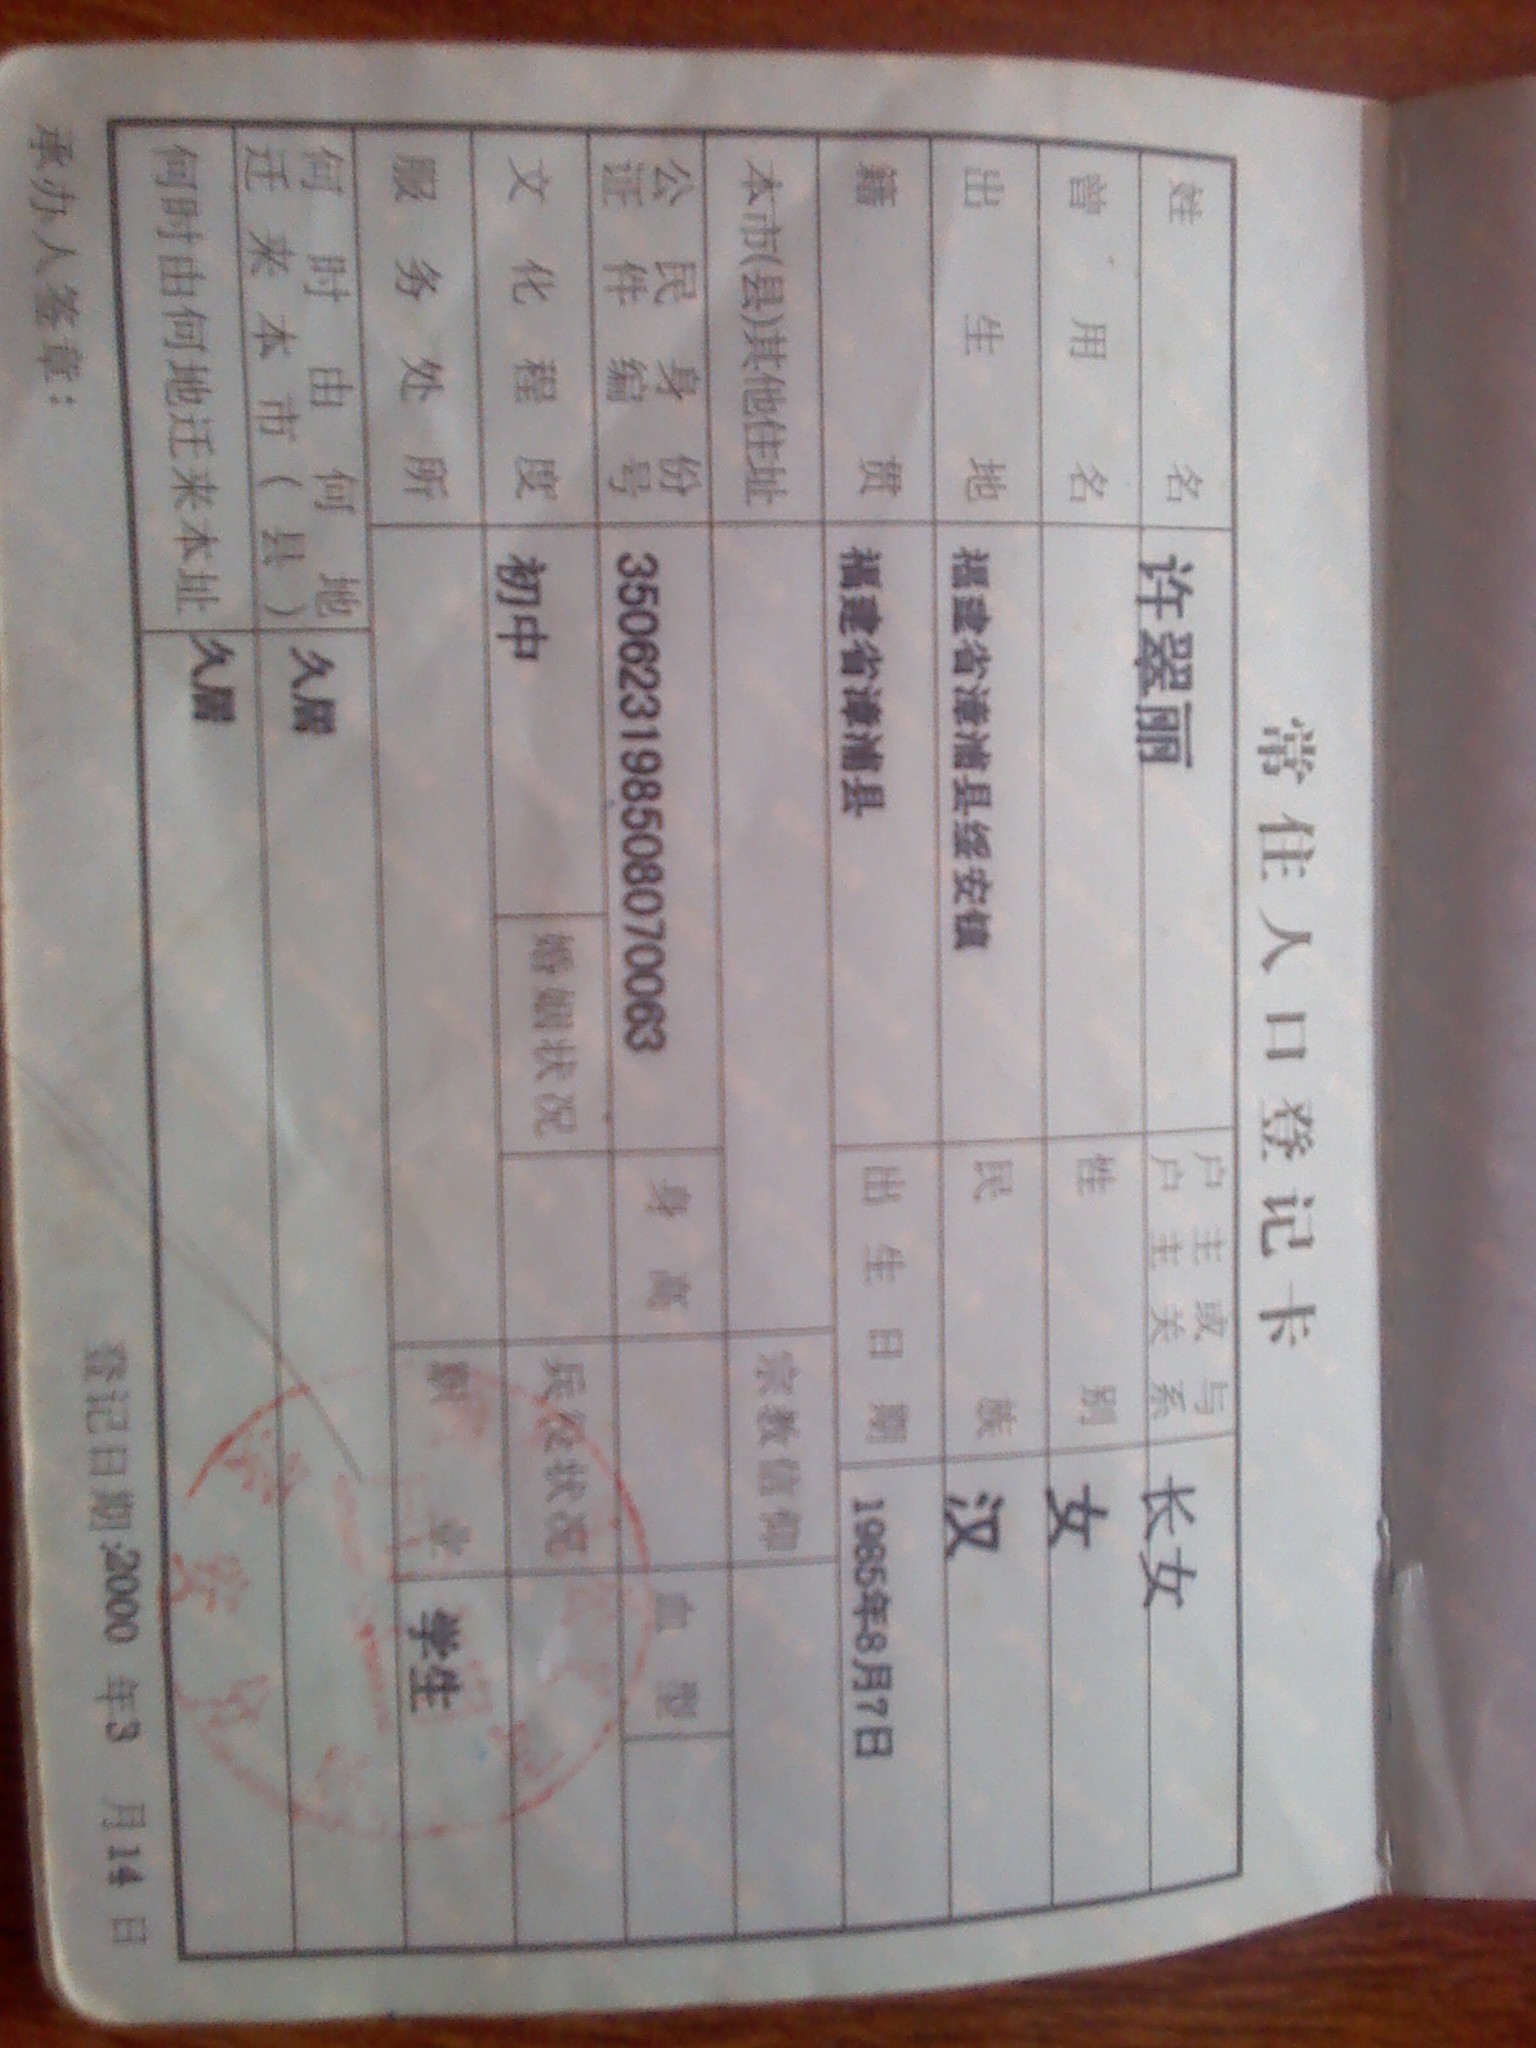 常住人口登记卡
姓名 许翠丽 户主或与户主关系 长女
曾用名 性别 女
出生地 福建省漳浦县绥安镇 民族 汉
籍贯 福建省漳浦县 出生日期 1985年8月7日
本市(县)其他住址 宗教信仰
公民身份证件编号 350623198508070063 身高 血型
文化程度 初中 婚姻状况 兵役状况
服务处所 职业 学生
何时由何地迁来本市(县) 久居
何时由何地迁来本址 久居
承办人签章: 登记日期:2000年3月14日